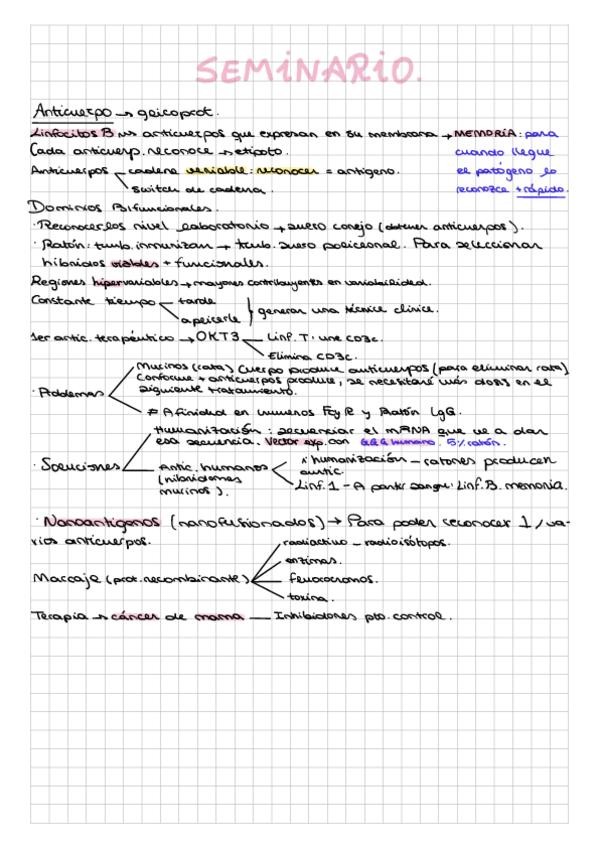 SEMINARIO.
Anticuerpo → glicoprot.
Linfocitos B → anticuerpos que expresan en su membrana → MEMORIA: para
Cada anticuerp. reconoce → epítoto. cuando llegue
Anticuerpos cadena variable: reconocer = antígeno. el patógeno lo
switch de cadena. reconozca + rápido.
Dominios Bifuncionales.
· Reconocerlos nivel laboratorio → suero conejo (obtener anticuerpos).
· Ratón: tamb. inmunizan → tamb. suero policlonal. Para seleccionar
hibridos viables + funcionales.
Regiones hipervariables → mayores contribuyentes en variabilidad.
Constante tiempo tarde
aplicarle generar una técnica clínica.
1er antic. terapéutico → OKT3 Linf. T. une CD3ε.
Elimina CD3ε.
Murinos (rata) Cuerpo produce anticuerpos (para eliminar rata)
Conforme + anticuerpos produce, se necesitará más dosis en el
siguiente tratamiento.
· Problemas
≠ Afinidad en humanos FcγR y Ratón IgG.
Humanización: secuenciar el mRNA que va a dar
esa secuencia. Vector exp. con humano. 5% ratón.
· Soluciones Antic. humanos humanización – ratones producen
antic.
(hibridomas
murinos). Linf. 1 - A partir sangre: Linf. B. memoria.
· Nanoantígenos (nanofusionados) → Para poder reconocer 1/va-
rios anticuerpos.
radiactivo – radioisótopos.
enzimas.
Marcaje (prot. recombinante) fluorocromos.
toxina.
Terapia → cáncer de mama — Inhibidores pto. control.